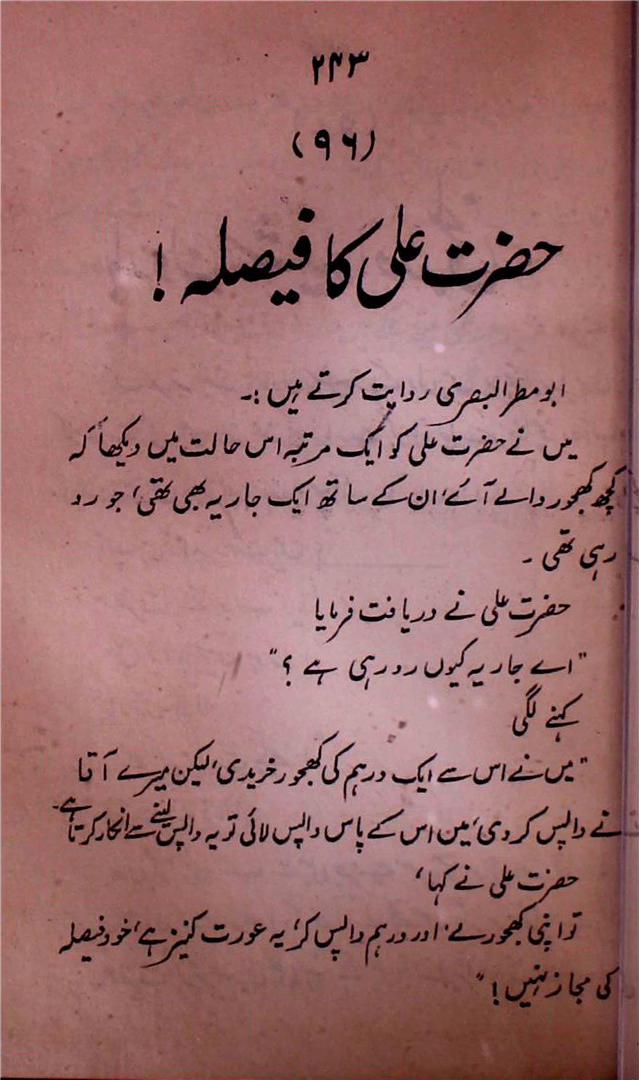 ۲۴۳
(۹۶)
حضرت علی کا فیصلہ !
ابو مطر البصری روایت کرتے ہیں :۔
میں نے حضرت علی کو ایک مرتبہ اس حالت میں دیکھا کہ
کچھ کھجور والے آئے، ان کے ساتھ ایک جاریہ بھی تھی، جو رو
رہی تھی ۔
حضرت علی نے دریافت فرمایا
"اے جاریہ کیوں رو رہی ہے ؟"
کہنے لگی
"میں نے اس سے ایک درہم کی کھجور خریدی، لیکن میرے آقا
نے واپس کر دی، مین اس کے پاس واپس لائی تو یہ واپس لینے سے انکار کرتا ہے۔
حضرت علی نے کہا،
تو اپنی کھجور لے، اور درہم واپس کر، یہ عورت کنیز ہے، خود فیصلہ
کی مجاز نہیں !"